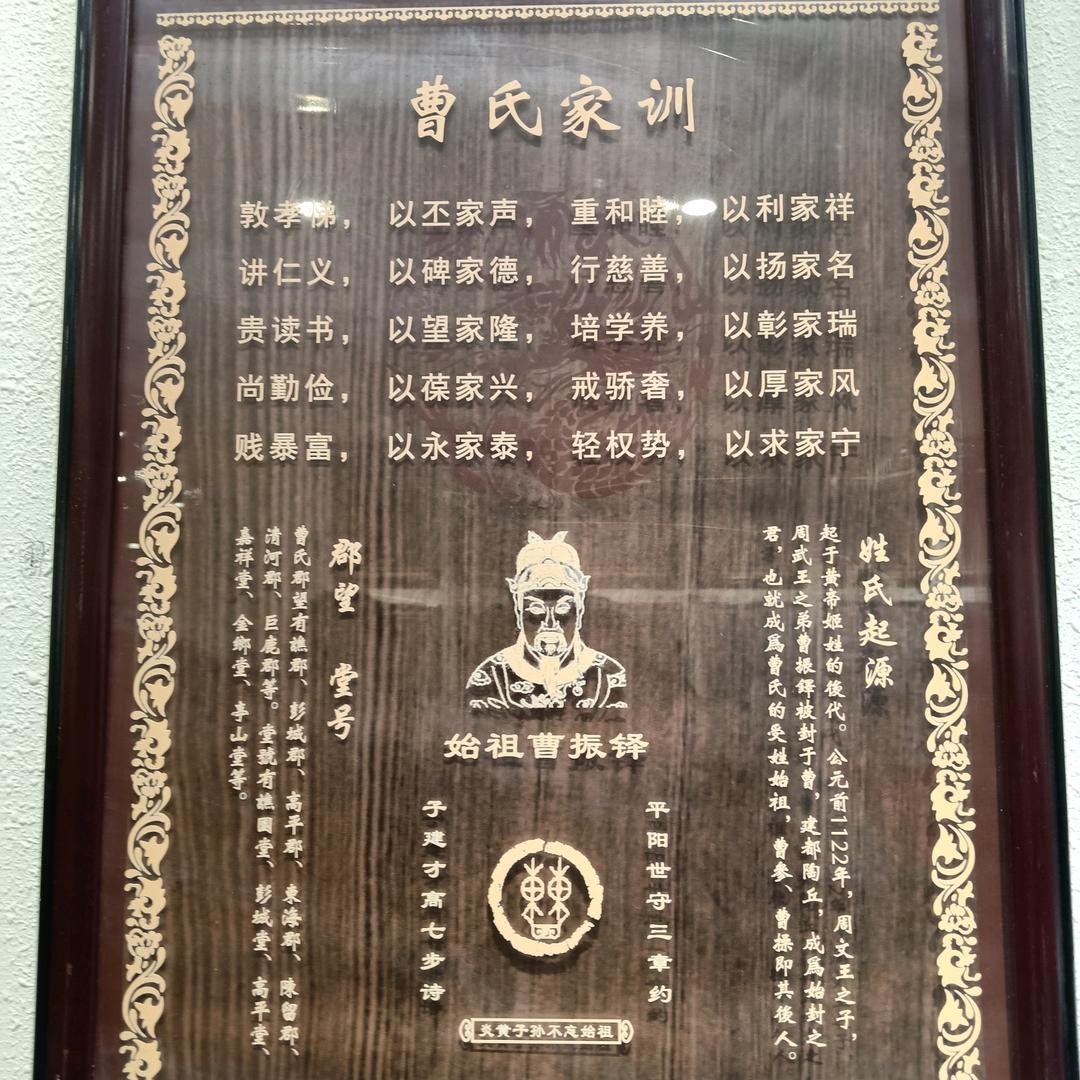 曹氏家训
敦孝悌， 以丕家声， 重和睦， 以利家祥
讲仁义， 以碑家德， 行慈善， 以扬家名
贵读书， 以望家隆， 培学养， 以彰家瑞
尚勤俭， 以葆家兴， 戒骄奢， 以厚家风
贱暴富， 以永家泰， 轻权势， 以求家宁
姓氏起源
起于黄帝姬姓的後代。公元前1122年，周文王之子，
周武王之弟曹振鐸被封于曹，建都陶丘，成爲始封之
君，也就成爲曹氏的受姓始祖，曹參、曹操即其後人。
始祖曹振铎
平阳世守三章约
子建才高七步诗
炎黄子孙不忘始祖
郡望 堂号
曹氏郡望有譙郡、彭城郡、高平郡、東海郡、陳留郡、
清河郡、巨鹿郡等。堂號有譙國堂、彭城堂、高平堂、
嘉祥堂、金鄉堂、亭山堂等。